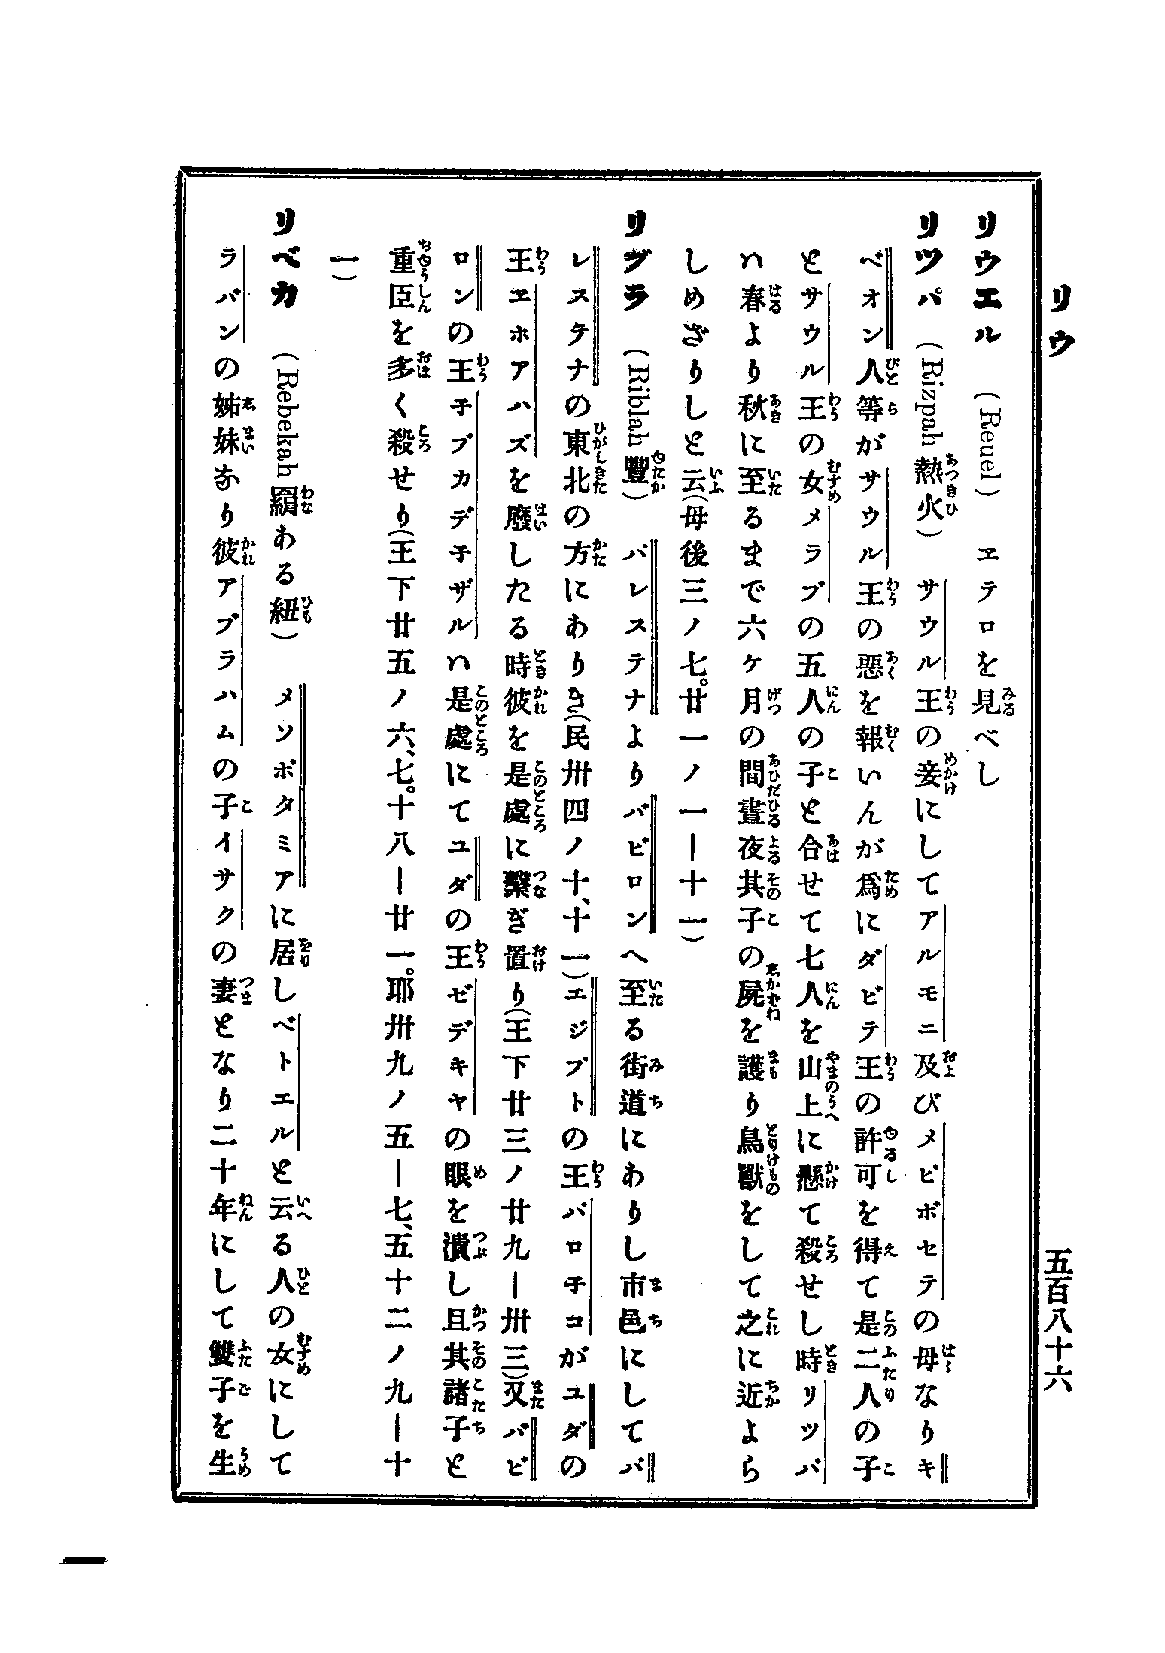 リウ
五百八十六
リウエル (Reuel) ヱテロを見べし
リツパ (Rizpah 熱火) サウル王の妾にしてアルモニ及びメピボセテの母なりキ
ベオン人等がサウル王の惡を報いんが爲にダビテ王の許可を得て是二人の子
とサウル王の女メラブの五人の子と合せて七人を山上に懸て殺せし時リツパ
ハ春より秋に至るまで六ケ月の間晝夜其子の屍を護り鳥獸をして之に近よら
しめざりしと云(母後三ノ七。廿一ノ一―十一)
リブラ (Riblah 豐) パレステナよりバビロンへ至る街道にありし市邑にしてパ
レステナの東北の方にありき(民卅四ノ十、十一)エジプトの王パロ子コがユダの
王ヱホアハズを廢したる時彼を是處に繫ぎ置り(王下廿三ノ廿九―卅三)又バビ
ロンの王子ブカデ子ザルハ是處にてユダの王ゼデキヤの眼を潰し且其諸子と
重臣を多く殺せり(王下廿五ノ六、七。十八―廿一。耶卅九ノ五―七、五十二ノ九―十
一)
リベカ (Rebekah 羂ある紐) メソポタミアに居しベトエルと云る人の女にして
ラバンの姊妹なり彼アブラハムの子イサクの妻となり二十年にして雙子を生